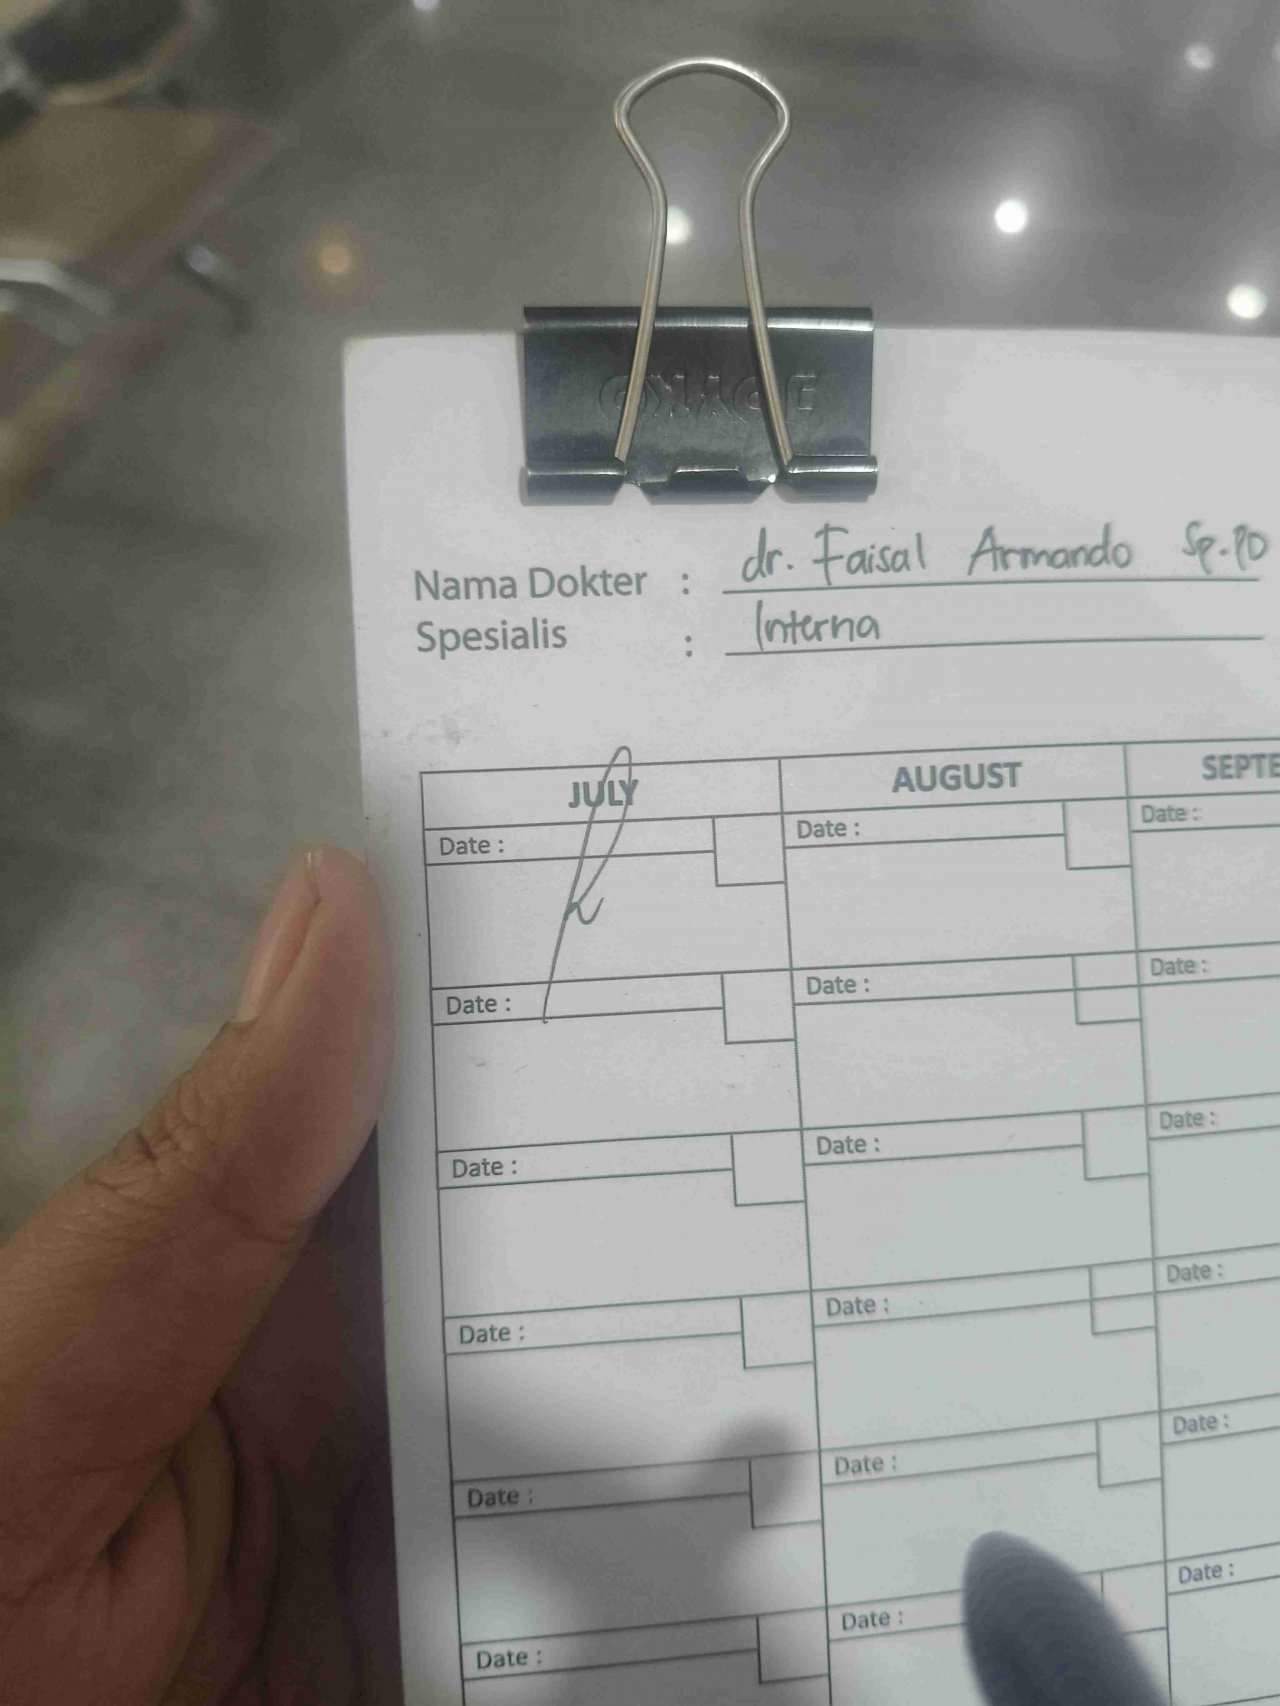 Nama Dokter : dr. Faisal Armando Sp.PD
Spesialis : Interna
JULY AUGUST
Date : Date : Date :
Date : Date : Date :
Date : Date : Date :
Date : Date : Date :
Date : Date : Date :
Date : Date : Date :